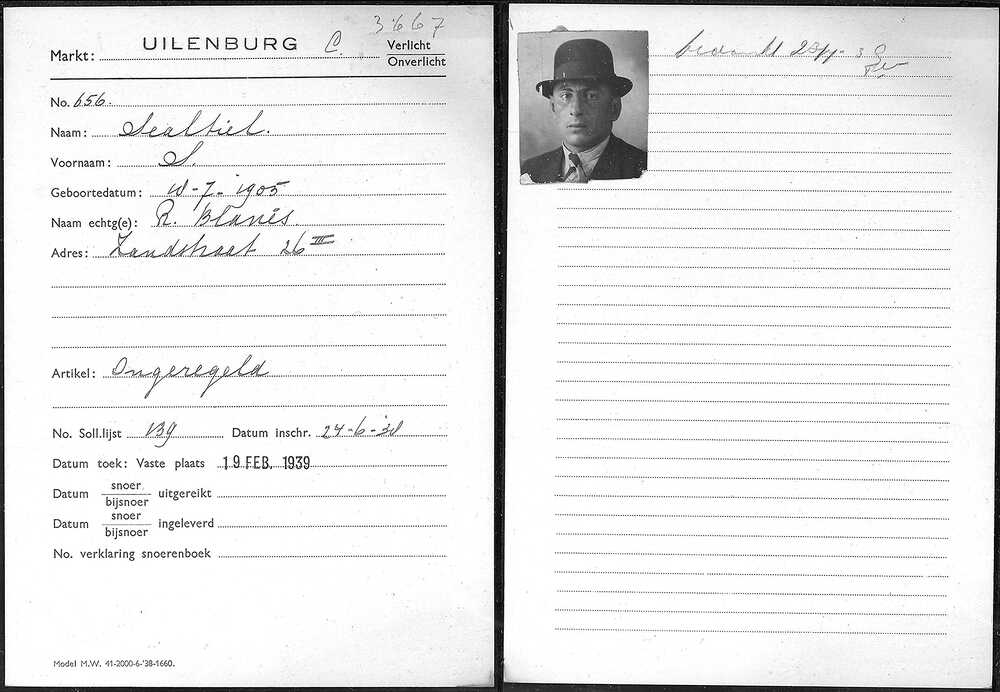 3667
Markt: UILENBURG C. Verlicht
Onverlicht
No. 656.
Naam: Sealtiel.
Voornaam: S.
Geboortedatum: -7-1905
Naam echtg(e): R. Blanes
Adres: Zandstraat 26 III
Artikel: Ongeregeld
No. Soll.lijst 139 Datum inschr. 24-6-38
Datum toek: Vaste plaats 19 FEB. 1939
Datum snoer/bijsnoer uitgereikt
Datum snoer/bijsnoer ingeleverd
No. verklaring snoerenboek
Model M.W. 41-2000-6-'38-1660.